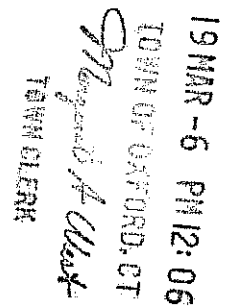 19 MAR -6 PM 12: 06
TOWN OF OXFORD, CT
Margaret A. West
TOWN CLERK